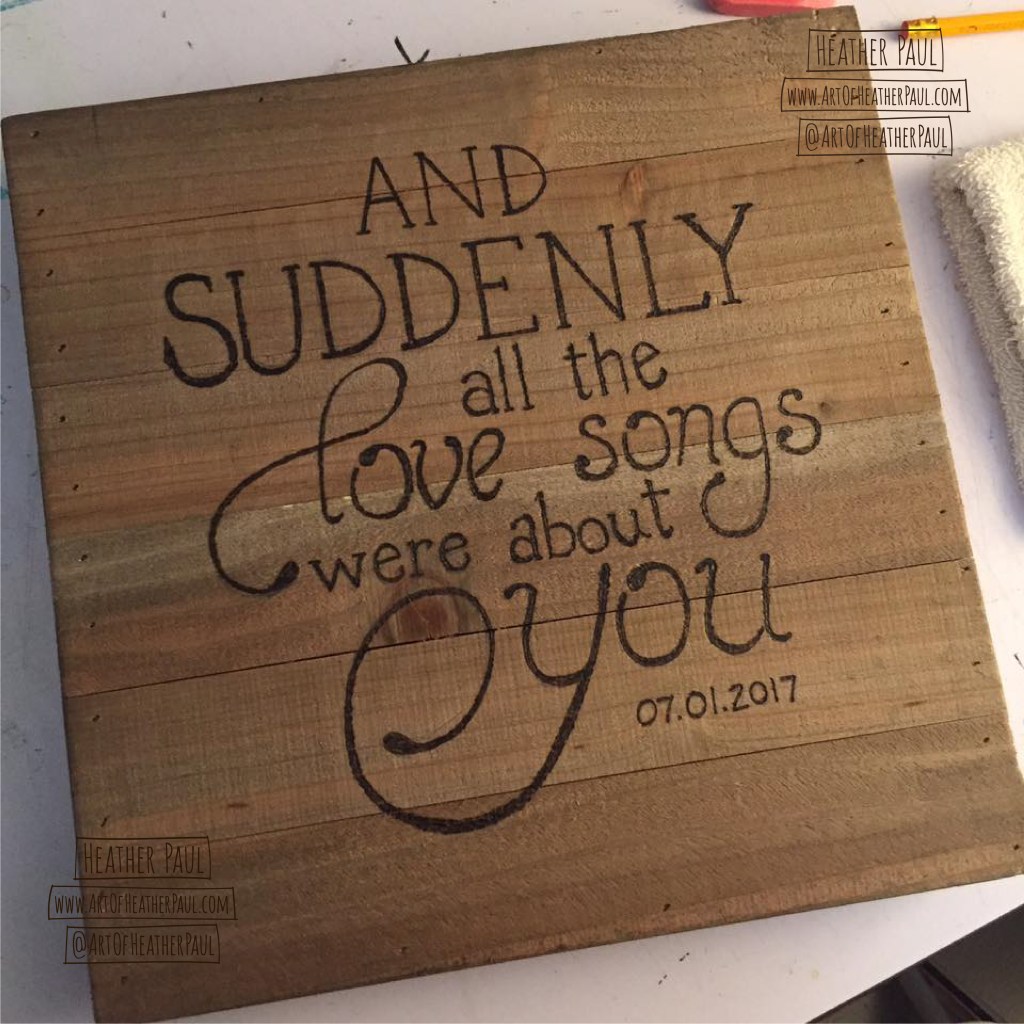 HEATHER PAUL
WWW.ARTOFHEATHERPAUL.COM
@ARTOFHEATHERPAUL
AND
SUDDENLY
all the
love songs
were about
you
07.01.2017
HEATHER PAUL
WWW.ARTOFHEATHERPAUL.COM
@ARTOFHEATHERPAUL